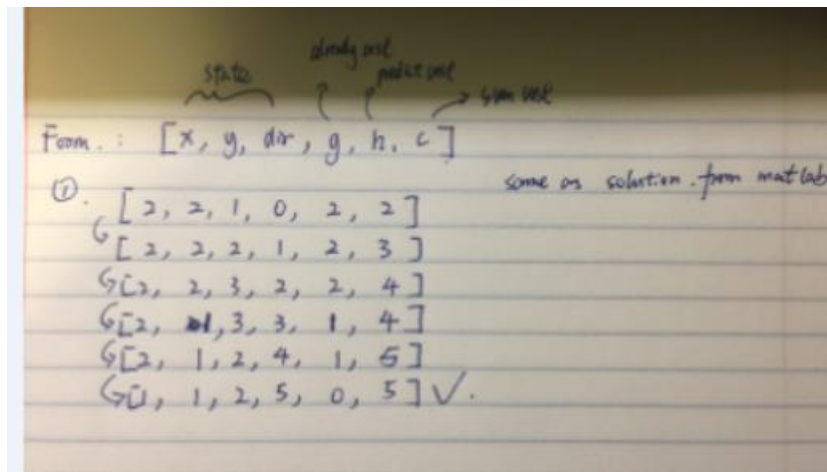 state already cost predict cost
sum cost
Form. : [x, y, dir, g, h, c]
same as solution from matlab
①. [2, 2, 1, 0, 2, 2]
[2, 2, 2, 1, 2, 3]
[2, 2, 3, 2, 2, 4]
[2, 1, 3, 3, 1, 4]
[2, 1, 2, 4, 1, 5]
[1, 1, 2, 5, 0, 5] ✓.